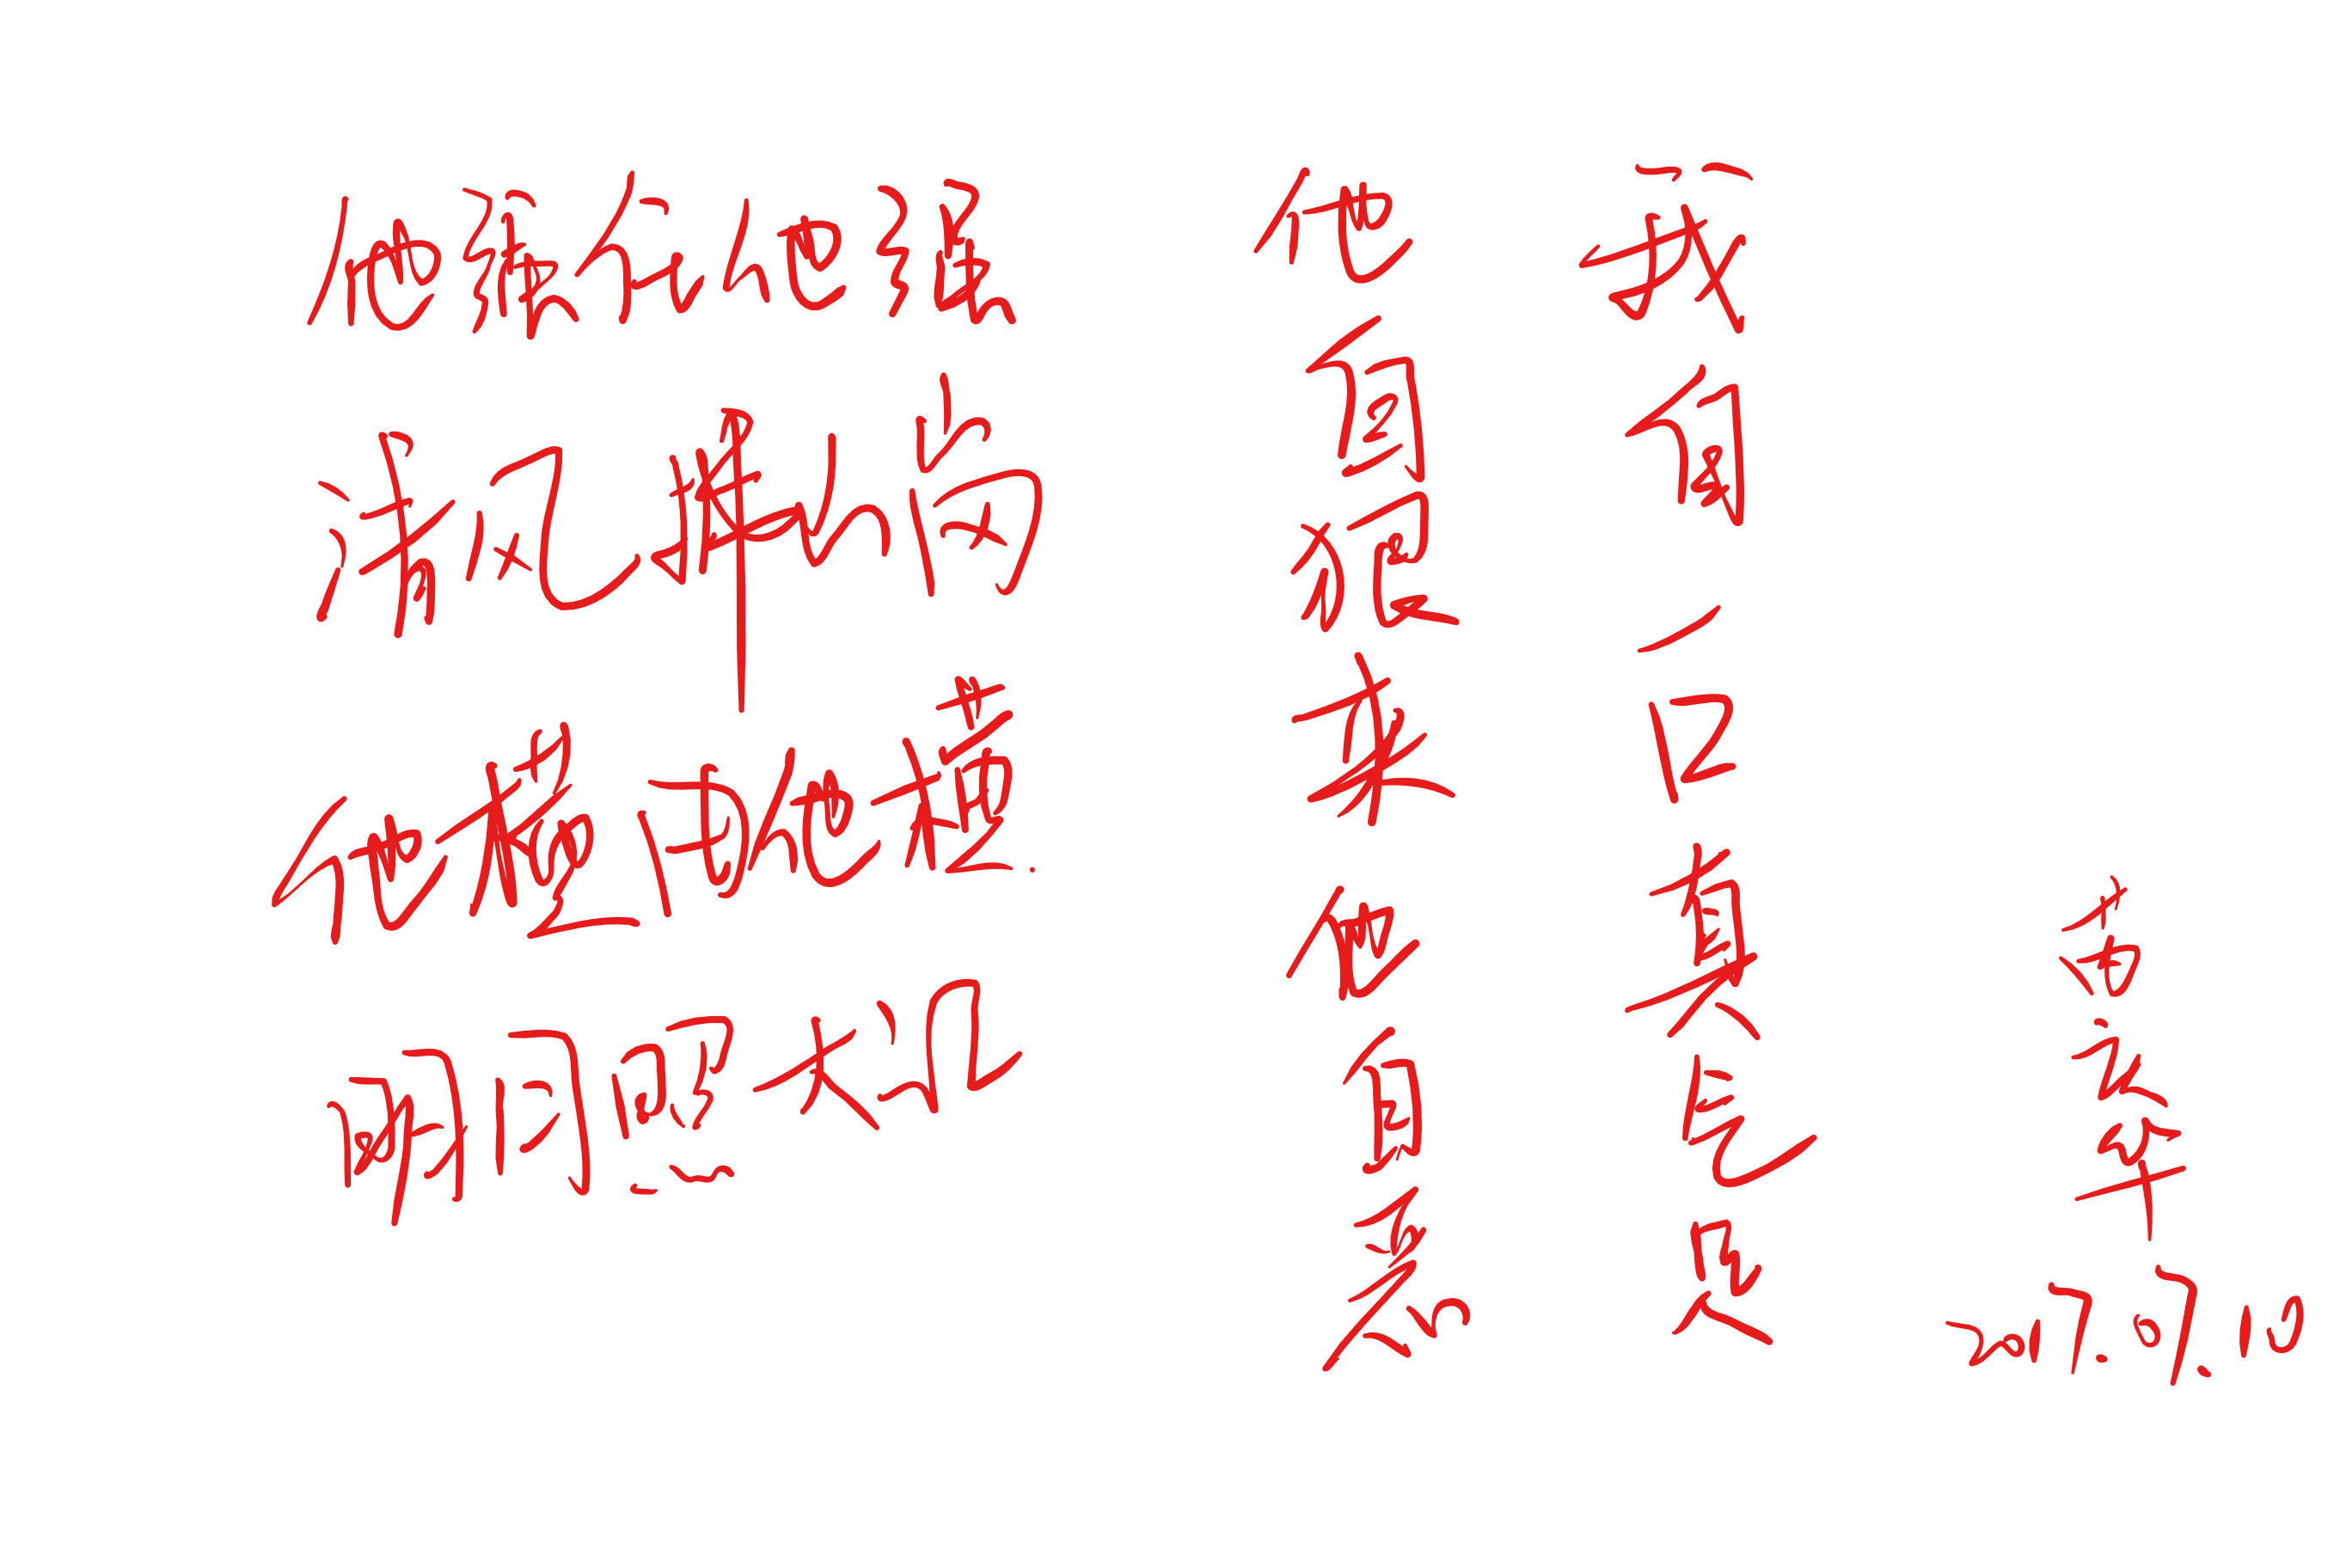 他强任他强
清风拂山岗
他横由他横
明月照大江
他自狠来他自恶
我自一口真气足
2017.07.10